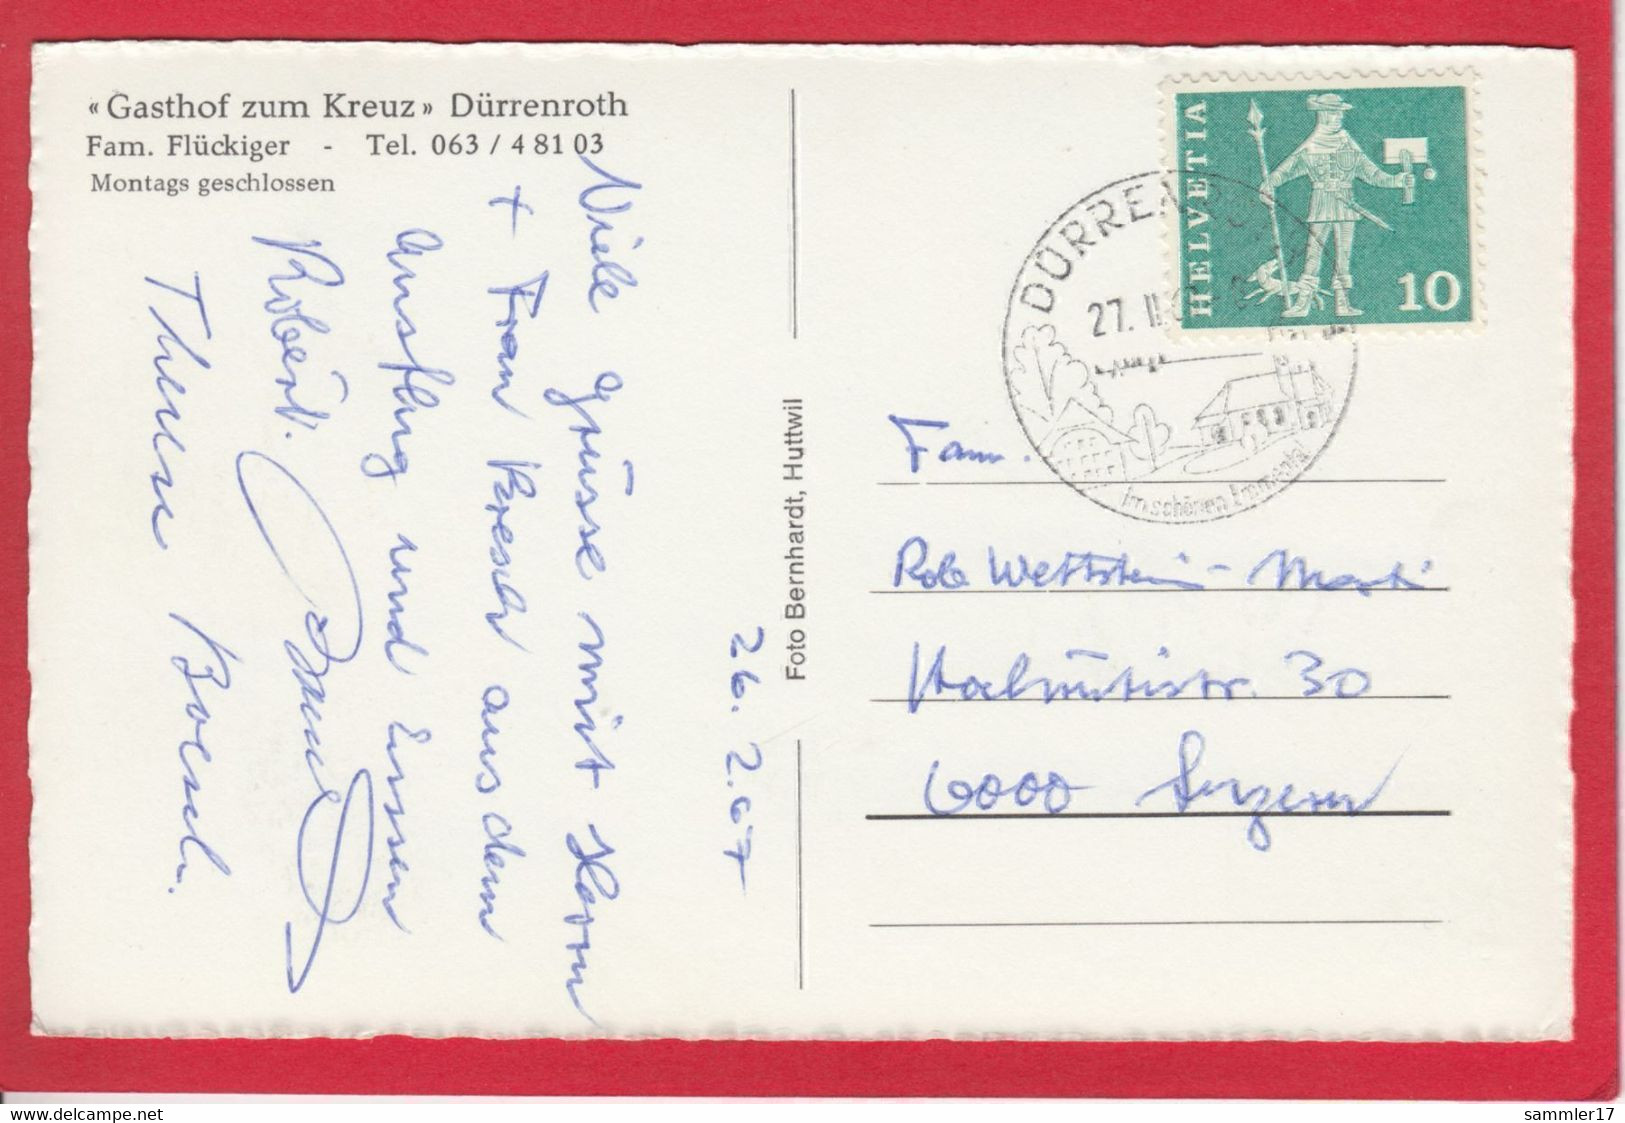 «Gasthof zum Kreuz» Dürrenroth
Fam. Flückiger - Tel. 063 / 4 81 03
Montags geschlossen
26. 2. 67
Viele Grüsse mit Herrn
+ Frau Kresch aus dem
Ausflug und Essen
Robert.
Therese Boesch.
Foto Bernhardt, Huttwil
HELVETIA
10
DÜRRENROTH
27. II.
Im schönen Emmental
Fam.
Rob Wettstein - Marti
Hochrütistr. 30
6000 Luzern
www.delcampe.net
sammler17